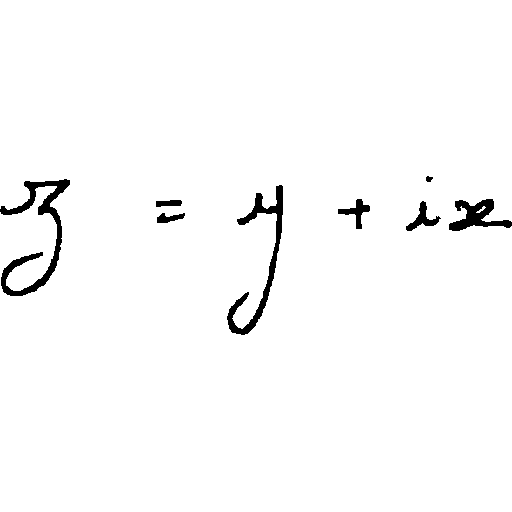 z = y + ix